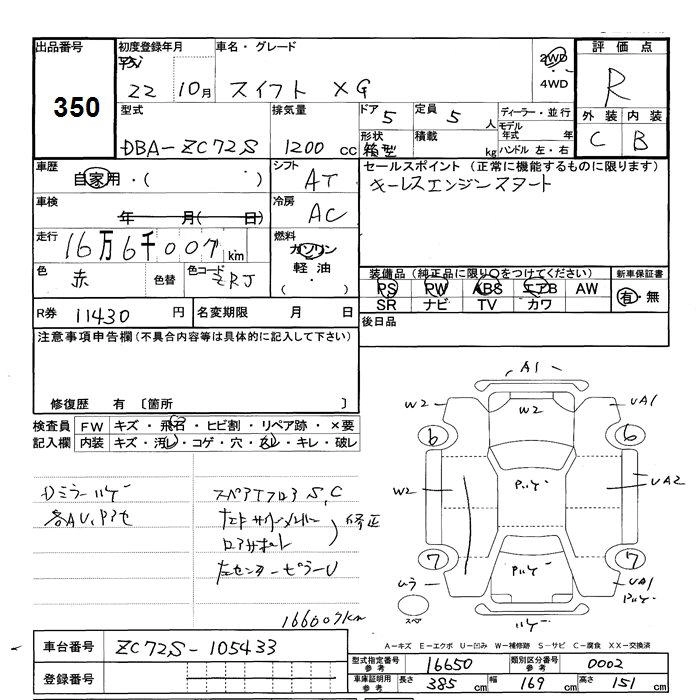 出品番号
350
初度登録年月
22 10月
車名・グレード
スイフト XG
2WD
4WD
評価点
R
外装 内装
C B
型式
DBA-ZC72S
排気量
1200 cc
ドア 5
定員 5 人
形状
箱型
積載 kg
ディーラー・並行
モデル
年式 年
ハンドル 左・右
車歴
自家用・( )
シフト
AT
セールスポイント (正常に機能するものに限ります)
キーレスエンジンスタート
車検
年 月( 日)
冷房
AC
走行
16万6千007 km
燃料
ガソリン
軽油
( ・ )
色
赤
色替
色コード
ZRJ
装備品 (純正品に限り○をつけてください)
PS PW ABS エアB AW
SR ナビ TV カワ
新車保証書
有・無
R券 11430 円
名変期限 月 日
後日品
注意事項申告欄 (不具合内容等は具体的に記入して下さい)
修復歴 有 〔箇所 〕
検査員
記入欄
FW キズ・飛石・ヒビ割・リペア跡・×要
内装 キズ・汚レ・コゲ・穴・スレ・キレ・破レ
スペアタイヤフロア S,C
修正
左センターピラーU
166007km
A1
W2
W2
UA1
6
6
W2
UA2
7
7
UA1
スペア
車台番号
ZC72S-105433
登録番号
A-キズ E-エクボ U-凹み W-補修跡 S-サビ C-腐食 XX-交換済
型式指定番号
参考
16650
類別区分番号
参考
0002
車庫証明用
参考
長さ 385 cm
幅 169 cm
高さ 151 cm